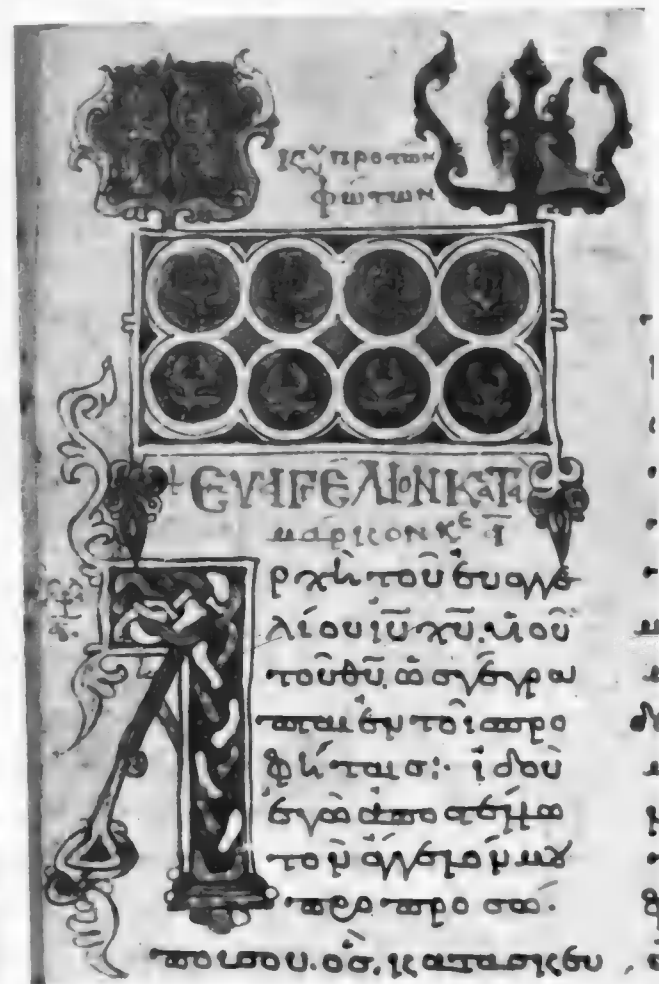 κυ προ τῶν
φώτων
+ ΕΥΑΓΓΕΛΙΟΝ ΚΑΤΑ
μάρκον κε
Αρχὴ τοῦ ευαγγε
λίου ιυ χυ. υἱοῦ
τοῦ θυ. ὡς γέγρα
πται ἐν τοῖς προ
φήταις: ἰδοὺ
ἐγὼ ἀποστέλλω
τὸν ἄγγελόν μου
προ προσώ
που σου. ὃς κατασκευ